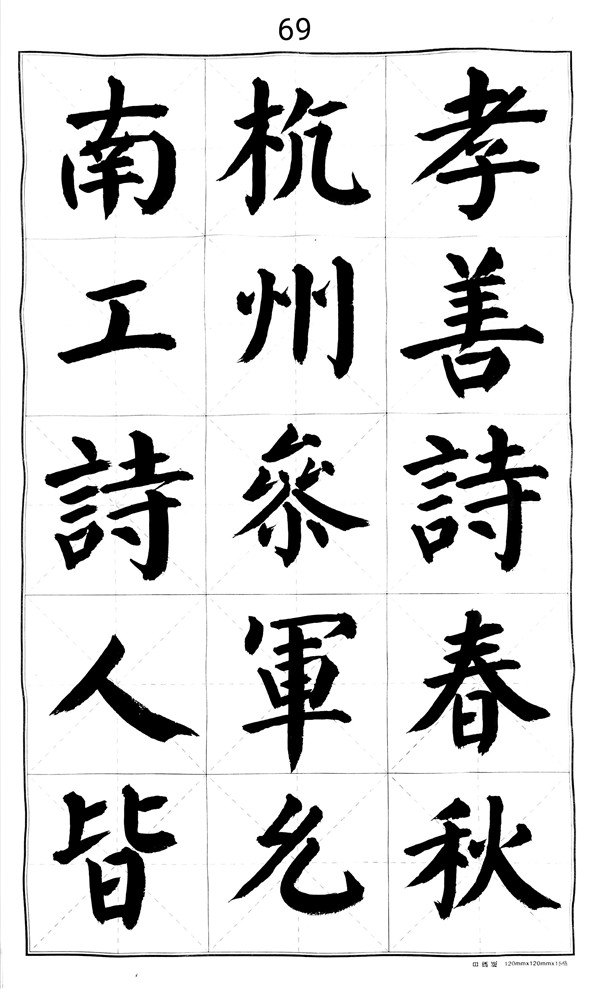 69
孝善詩春秋
杭州叅軍允
南工詩人皆
120mmx120mmx15格